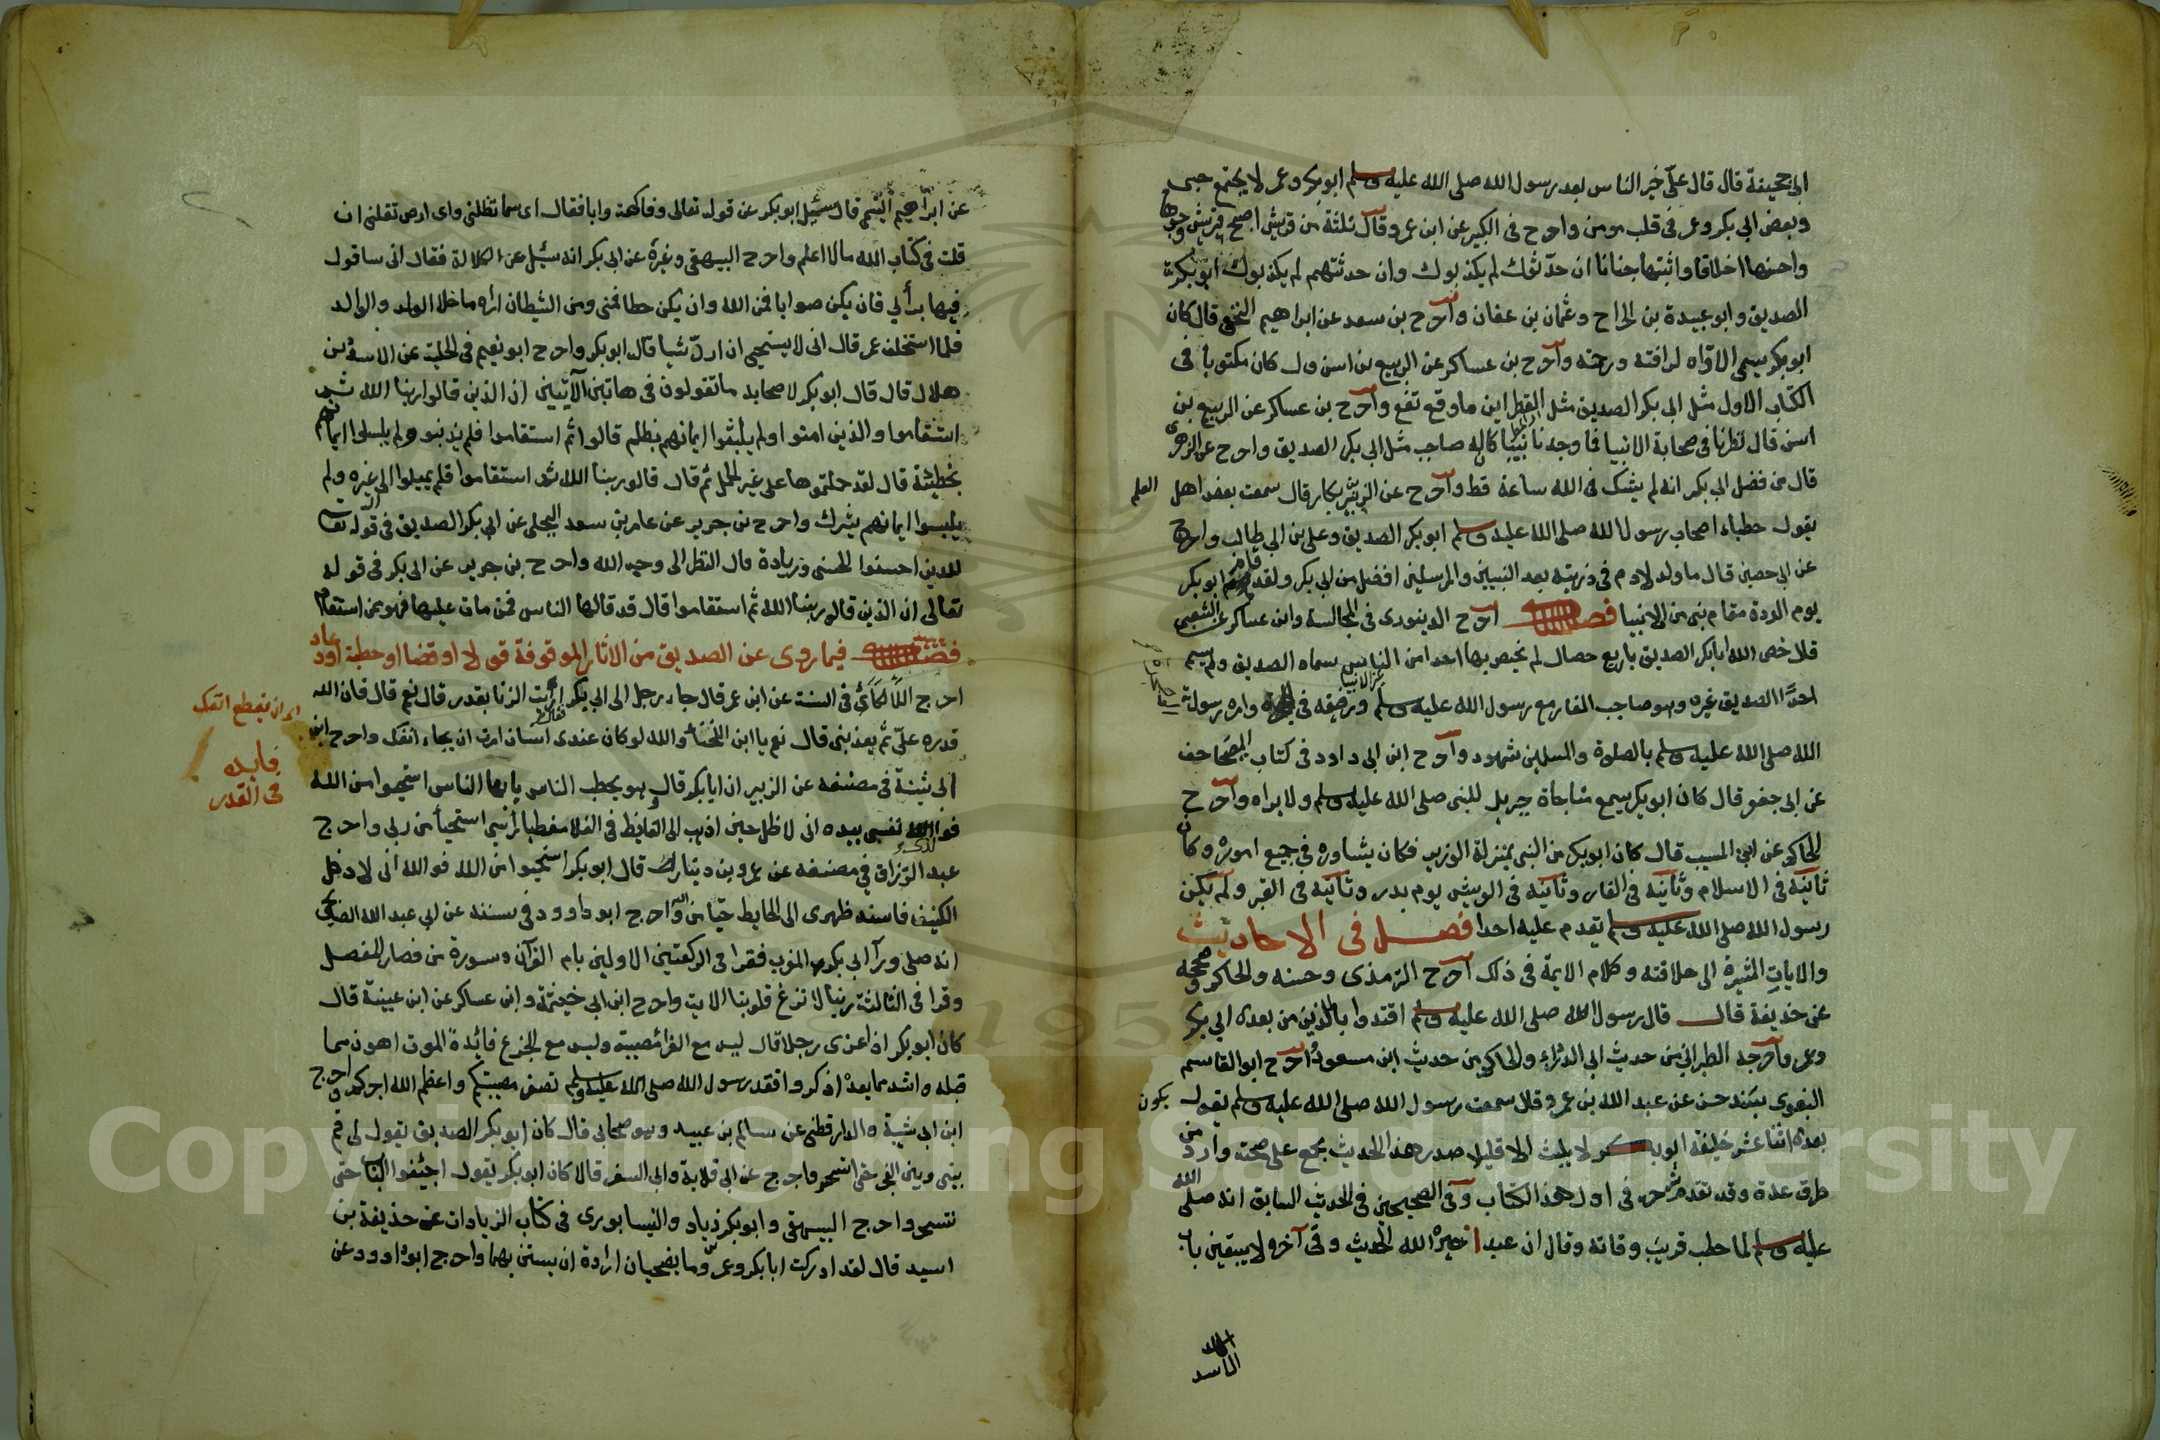 ابى جحيفة قال قال علىّ خير الناس بعد رسول الله صلى الله عليه وسلم ابو بكر وعمر لا يجتمع حبى
وبغض ابي بكر وعمر فى قلب مومن واخرج فى الكبير عن ابن عمرو قال ثلثة من قريش اصبح قريش وجوها
واحسنها اخلاقا واثبتها جنانا ان حدثوك لم يكذبوك وان حدثتهم لم يكذبوك ابو بكر
الصديق وابو عبيدة بن الجراح وعثمان بن عفان واخرج بن سعد عن ابراهيم النخعى قال كان
ابو بكر يسمى الاوّاه لرافته ورحمته واخرج بن عساكر عن الربيع بن انس قال كان مكتوبا فى
الكتاب الاول مثل ابى بكر الصديق مثل القطر اين ما وقع نفع واخرج بن عساكر عن الربيع بن
انس قال نظرنا فى صحابة الانبيا فما وجدنا نبيا كان له صاحب مثل ابى بكر الصديق واخرج عن الزهرى
قال من فضل ابى بكر انه لم يشك فى الله ساعة قط واخرج عن الزبير بكار قال سمعت بعض اهل العلم
يقول خطباء اصحاب رسول الله صلى الله عليه وسلم ابو بكر الصديق وعلى بن ابى طالب واخرج
عن ابى حصين قال ما ولد لادم فى ذريته بعد النبيين والمرسلين افضل من ابى بكر ولقد قام ابو بكر
يوم الردة مقام نبى من الانبيا فصل اخرج الدينورى فى المجالسة وابن عساكر عن الشعبى
قال خص الله ابا بكر الصديق باربع خصال لم يخص بها احدا من الناس سماه الصديق ولم يسم
احدًا الصديق غيره وهو صاحب الغار مع رسول الله صلى الله عليه وسلم ورفيقه فى الهجرة وامره رسول
الله صلى الله عليه وسلم بالصلوة والمسلمين شهود واخرج ابن ابى داود فى كتاب المصاحف
عن ابى جعفر قال كان ابو بكر يسمع مناجاة جبريل للنبى صلى الله عليه وسلم ولا يراه واخرج
الحاكم عن ابن المسيب قال كان ابو بكر من النبى بمنزلة الوزير فكان يشاوره فى جميع اموره وكان
ثانيه فى الاسلام وثانيه فى الغار وثانيه فى العريش يوم بدر وثانيه فى القبر ولم يكن
رسول الله صلى الله عليه وسلم يقدم عليه احدا فصل فى الاحاديث
والايات المشيرة الى خلافته وكلام الايمة فى ذلك اخرج الترمذى وحسنه والحاكم وصححه
عن حذيفة قال قال رسول الله صلى الله عليه وسلم اقتدوا بالذين من بعدى ابى بكر
وعمر واخرجه الطبرانى من حديث ابى الدرداء والحاكم من حديث ابن مسعود واخرج ابو القاسم
البغوى بسند حسن عن عبد الله بن عمرو قال سمعت رسول الله صلى الله عليه وسلم يقول يكون
بعدى اثنا عشر خليفة ابو بكر لا يلبث الا قليلا صدر هذا الحديث مجمع على صحته وارد من
طرق عدة وقد تقدم شرحه فى اول هذا الكتاب وفى الصحيحين فى الحديث السابق انه صلى الله
عليه وسلم لما خطب قريب وفاته وقال ان عبدا خيره الله الحديث وفى آخره لا يبقين باب
عن ابراهيم التيمى قال سئيل ابو بكر عن قوله تعالى وفاكهة وابا فقال اى سما تظلنى واى ارض تقلنى ان
قلت فى كتاب الله مالا اعلم واخرج البيهقى وغيره عن ابى بكر انه سئيل عن الكلالة فقال انى ساقول
فيها برأيى فان يكن صوابا فمن الله وان يكن خطا فمنى ومن الشيطان اراه ما خلا الولد والوالد
فلما استخلف عمر قال انى لا يستحيى ان اردّ شيا قال ابو بكر واخرج ابو نعيم فى الحلية عن الاسود بن
هلال قال قال ابو بكر لاصحابه ما تقولون فى هاتين الآيتين ان الذين قالوا ربنا الله ثم
استقاموا والذين امنوا ولم يلبسوا ايمانهم بظلم قالوا ثم استقاموا فلم يذنبوا ولم يلبسوا ايمانهم
بخطيئة قال لقد حملتموها على غير المحمل ثم قال قالوا ربنا الله ثم استقاموا فلم يميلوا الى غيره ولم
يلبسوا ايمانهم بشرك واخرج بن جرير عن عامر بن سعد البجلى عن ابى بكر الصديق فى قوله تعالى
للذين احسنوا الحسنى وزيادة قال النظر الى وجه الله واخرج بن جرير عن ابى بكر فى قوله
تعالى ان الذين قالوا ربنا الله ثم استقاموا قال قد قالها الناس فمن مات عليها فهو ممن استقام
فصل فيما روى عن الصديق من الاثار الموقوفة قولا او قضا او خطبة او دعاء
اخرج اللالكائى فى السنة عن ابن عمر قال جاء رجل الى ابى بكر فقال ارأيت الزنا بقدر قال نعم قال فان الله
قدره علىّ ثم يعذبنى قال نعم يا ابن اللخناء والله لو كان عندى انسان امرت ان يجاء انفك واخرج ابن
ابى شيبة فى مصنفه عن الزبير ان ابا بكر قال وهو يخطب الناس يايها الناس استحيوا من الله
فوالذى نفسى بيده انى لاظل حين اذهب الى الغايط فى الفلا مغطيا رأسى استحيأ من ربى واخرج
عبد الرزاق فى مصنفه عن عمرو بن دينار قال قال ابو بكر استحيوا من الله فوالله انى لادخل
الكنيف فاسند ظهرى الى الحايط حيا من الله واخرج ابو داوود فى سننه عن ابى عبد الله الصنابحى
انه صلى ورآ ابى بكر المغرب فقرا فى الركعتين الاولين بام القرآن وسورة من قصار المفصل
وقرا فى الثالثة ربنا لا تزغ قلوبنا الاية واخرج ابن ابى خيثمة وابن عساكر عن ابن عيينة قال
كان ابو بكر اذا عزى رجلا قال ليس مع العزا مصيبة وليس مع الجزع فائدة الموت اهون مما
قبله واشد مما بعده اذكروا فقد رسول الله صلى الله عليه وسلم تصغر مصيبتكم واعظم الله اجركم واخرج
ابن ابى شيبة والدارقطنى عن سالم بن عبيد وهو صحابى قال كان ابو بكر الصديق يقول لى قم
بينى وبين الفجر حتى اتسحر واخرج عن ابى قلابة وابى السفر قالا كان ابو بكر يقول اجيفوا الباب حتى
نتسحر واخرج البيهقى وابو بكر زياد والنيسابورى فى كتاب الزيادات عن حذيفة بن
اسيد قال لقد ادركت ابا بكر وعمر وما يضحيان ارادة ان يستن بهما واخرج ابو داود عن
امر ان يقطع انفك
فايده
فى القدر
Copyright © King Saud University
195